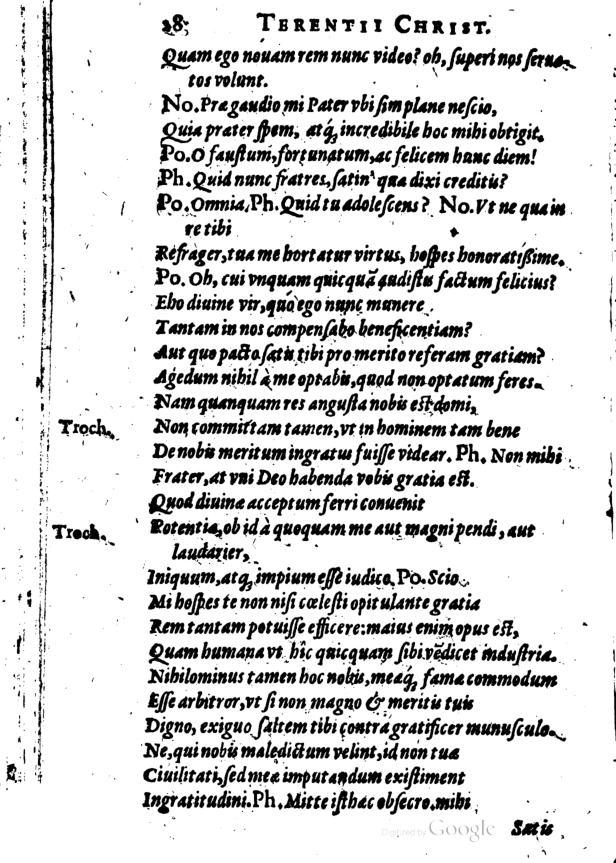 28 TERENTII CHRIST.
Quam ego nouam rem nunc video? oh, ſuperi nos ſerua-
tos volunt.
No. Præ gaudio mi Pater vbi ſim plane neſcio,
Quia præter ſpem, atq́; incredibile hoc mihi obtigit.
Po. O fauſtum, fortunatum, ac felicem hunc diem!
Ph. Quid nunc fratres, ſatin' quæ dixi creditis?
Po. Omnia. Ph. Quid tu adoleſcens? No. Vt ne qua in
re tibi
Refrager, tua me hortatur virtus, hoſpes honoratißime.
Po. Oh, cui vnquam quicquã audiſtis factum felicius?
Eho diuine vir, quo ego nunc munere
Tantam in nos compenſabo beneficentiam?
Aut quo pacto ſatis tibi pro merito referam gratiam?
Agedum nihil à me optabis, quod non optatum feres.
Nam quanquam res anguſta nobis eſt domi,
Troch. Non committam tamen, vt in hominem tam bene
De nobis meritum ingratus fuiſſe videar. Ph. Non mihi
Frater, at vni Deo habenda vobis gratia eſt.
Quod diuinæ acceptum ferri conuenit
Troch. Potentiæ, ob id à quoquam me aut magni pendi, aut
laudarier,
Iniquum, atq́; impium eſſe iudico. Po. Scio
Mi hoſpes te non niſi cœleſti opitulante gratia
Rem tantam potuiſſe efficere: maius enim opus eſt,
Quam humana vt hîc quicquam ſibi vẽdicet induſtria.
Nihilominus tamen hoc nobis, meæq́; famæ commodum
Eſſe arbitror, vt ſi non magno & meritis tuis
Digno, exiguo ſaltem tibi contrà gratificer munuſculo.
Ne, qui nobis maledictum velint, id non tuæ
Ciuilitati, ſed meæ imputandum exiſtiment
Ingratitudini. Ph. Mitte iſthæc obſecro, mihi
Satis
Digitized by Google